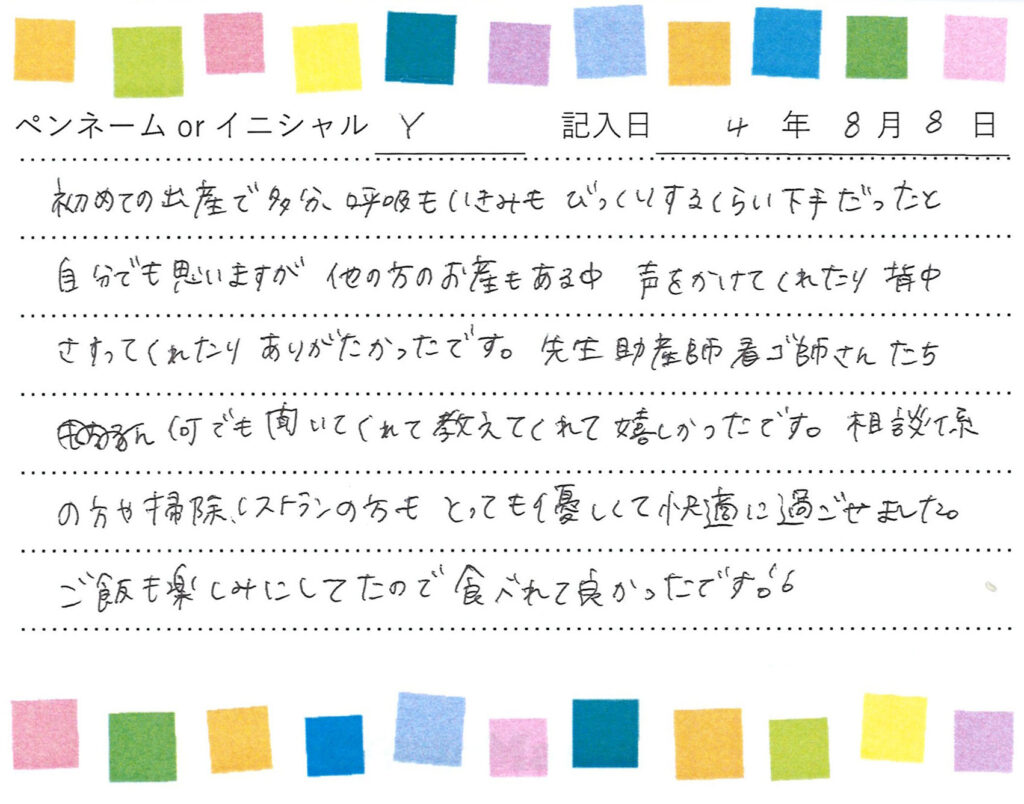 ペンネーム or イニシャル Y 記入日 4 年 8 月 8 日
初めての出産で多分、呼吸もいきみも びっくりするくらい下手だったと
自分でも思いますが 他の方のお産もある中 声をかけてくれたり 背中
さすってくれたり ありがたかったです。 先生 助産師 看ゴ師さん たち
何でも聞いてくれて教えてくれて嬉しかったです。 相談係
の方や掃除、レストランの方も とっても優しくて快適に過ごせました。
ご飯も楽しみにしてたので 食べれて良かったです。